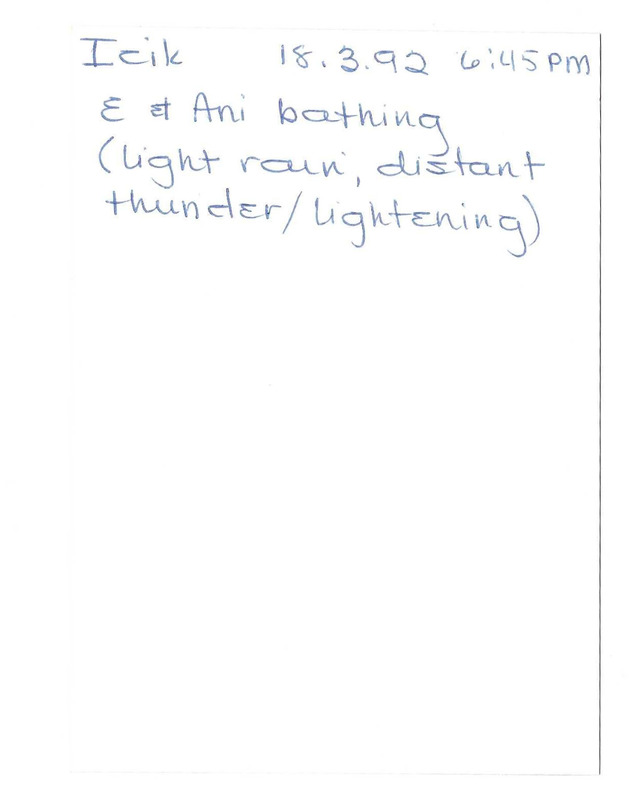 Icik 18.3.92 6:45PM
E & Ani bathing
(light rain, distant
thunder/lightening)